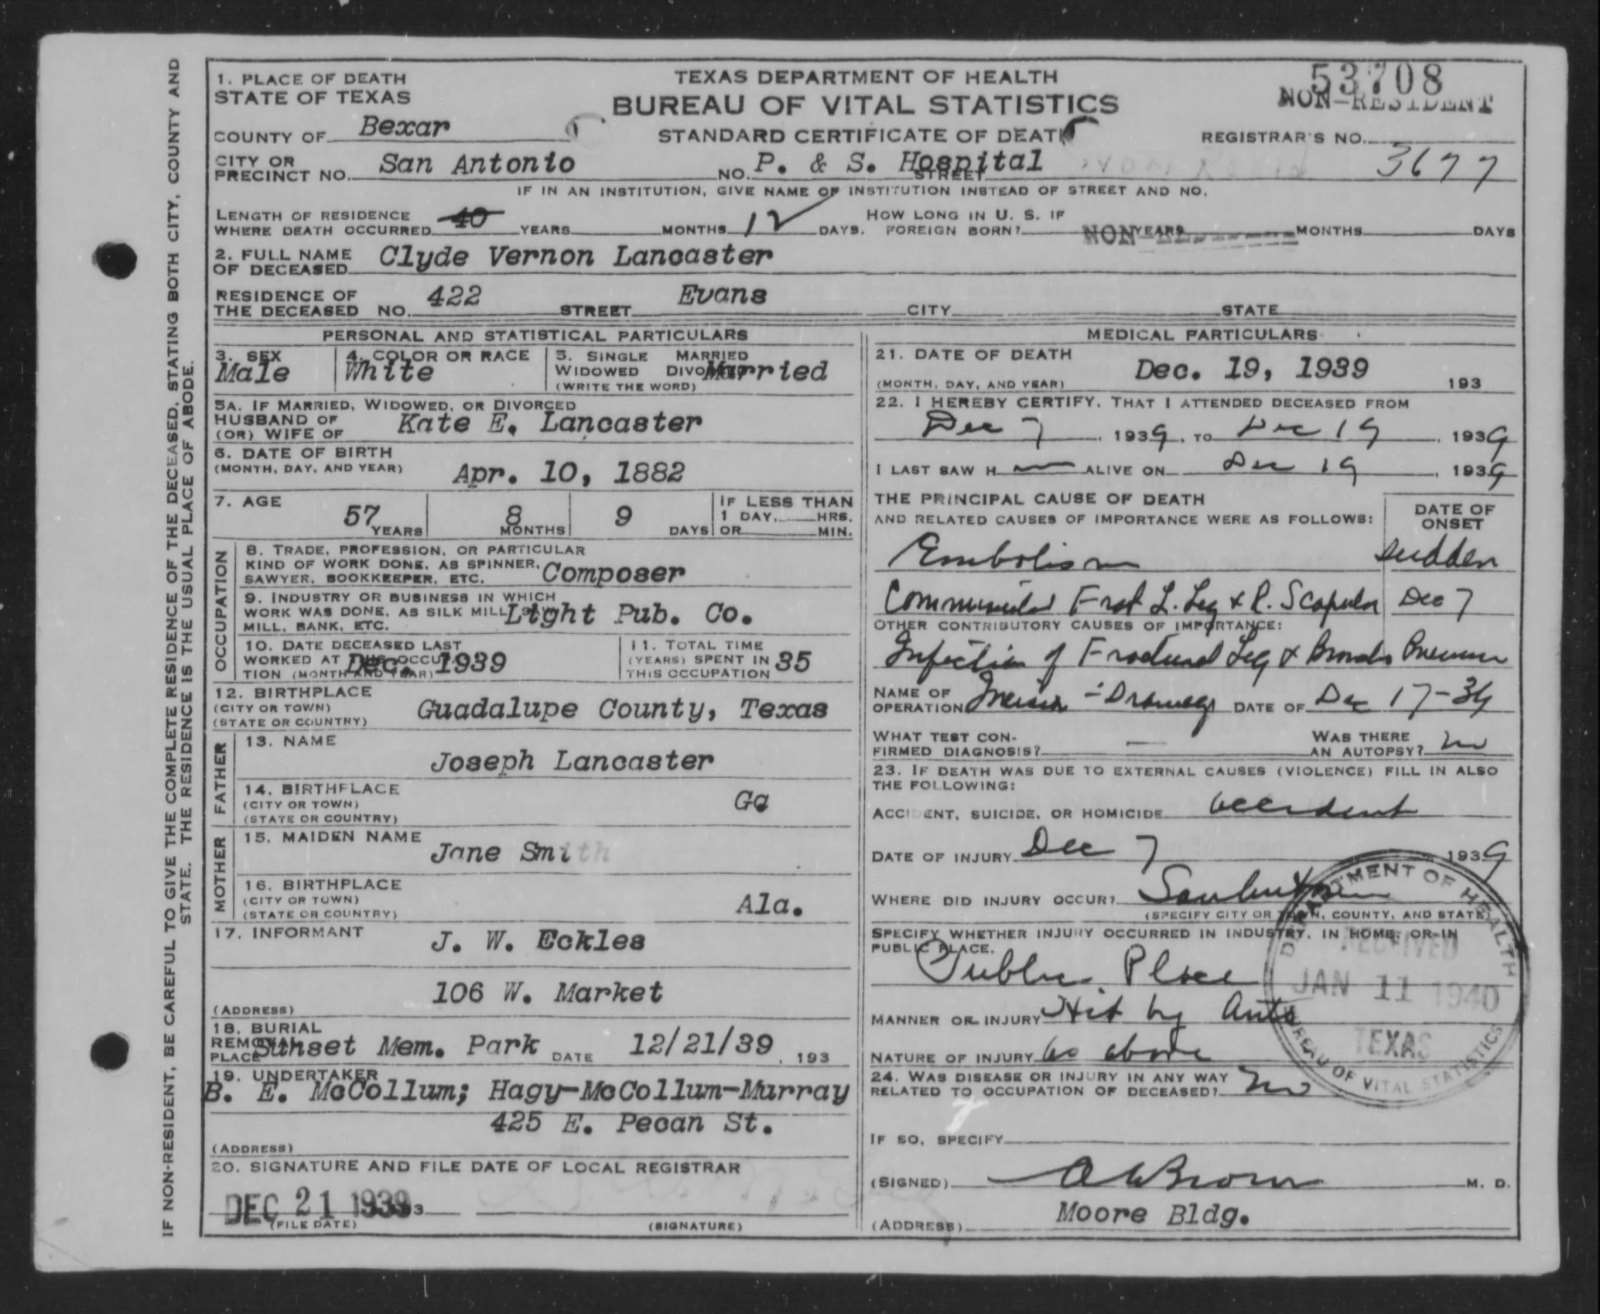 53708
NON-RESIDENT
1. PLACE OF DEATH
STATE OF TEXAS
COUNTY OF Bexar
CITY OR PRECINCT NO. San Antonio
TEXAS DEPARTMENT OF HEALTH
BUREAU OF VITAL STATISTICS
STANDARD CERTIFICATE OF DEATH
REGISTRAR'S NO. 3677
NO. P. & S. Hospital STREET
IF IN AN INSTITUTION, GIVE NAME OF INSTITUTION INSTEAD OF STREET AND NO.
LENGTH OF RESIDENCE WHERE DEATH OCCURRED 40 YEARS MONTHS 12 DAYS. HOW LONG IN U. S. IF FOREIGN BORN? YEARS MONTHS DAYS
NON
2. FULL NAME OF DECEASED Clyde Vernon Lancaster
RESIDENCE OF THE DECEASED NO. 422 STREET Evans CITY STATE
PERSONAL AND STATISTICAL PARTICULARS
3. SEX Male
4. COLOR OR RACE White
5. SINGLE MARRIED WIDOWED DIVORCED (WRITE THE WORD) Married
5A. IF MARRIED, WIDOWED, OR DIVORCED
HUSBAND OF (OR) WIFE OF Kate E. Lancaster
6. DATE OF BIRTH (MONTH, DAY, AND YEAR) Apr. 10, 1882
7. AGE 57 YEARS 8 MONTHS 9 DAYS IF LESS THAN 1 DAY, HRS. OR MIN.
OCCUPATION
8. TRADE, PROFESSION, OR PARTICULAR KIND OF WORK DONE, AS SPINNER, SAWYER, BOOKKEEPER, ETC. Composer
9. INDUSTRY OR BUSINESS IN WHICH WORK WAS DONE, AS SILK MILL, MILL, BANK, ETC. Light Pub. Co.
10. DATE DECEASED LAST WORKED AT THIS OCCUPATION (MONTH AND YEAR) Dec. 1939
11. TOTAL TIME (YEARS) SPENT IN THIS OCCUPATION 35
12. BIRTHPLACE (CITY OR TOWN) (STATE OR COUNTRY) Guadalupe County, Texas
FATHER
13. NAME Joseph Lancaster
14. BIRTHPLACE (CITY OR TOWN) (STATE OR COUNTRY) Ga
MOTHER
15. MAIDEN NAME Jane Smith
16. BIRTHPLACE (CITY OR TOWN) (STATE OR COUNTRY) Ala.
17. INFORMANT J. W. Eckles
(ADDRESS) 106 W. Market
18. BURIAL REMOVAL PLACE Sunset Mem. Park DATE 12/21/39, 193
19. UNDERTAKER
B. E. McCollum; Hagy-McCollum-Murray
(ADDRESS) 425 E. Pecan St.
20. SIGNATURE AND FILE DATE OF LOCAL REGISTRAR
DEC 21 1939
(FILE DATE) (SIGNATURE)
MEDICAL PARTICULARS
21. DATE OF DEATH (MONTH, DAY, AND YEAR) Dec. 19, 1939 193
22. I HEREBY CERTIFY, THAT I ATTENDED DECEASED FROM
Dec 7, 1939, TO Dec 19, 1939
I LAST SAW H ALIVE ON Dec 19, 1939
THE PRINCIPAL CAUSE OF DEATH
AND RELATED CAUSES OF IMPORTANCE WERE AS FOLLOWS: DATE OF ONSET
Embolism sudden
Comminuted Fract L. Leg & R. Scapula Dec 7
OTHER CONTRIBUTORY CAUSES OF IMPORTANCE:
Infection of Fractured Leg & Broncho Pneumon
NAME OF OPERATION Incision - Drainage DATE OF Dec 17-39
WHAT TEST CONFIRMED DIAGNOSIS? — WAS THERE AN AUTOPSY? no
23. IF DEATH WAS DUE TO EXTERNAL CAUSES (VIOLENCE) FILL IN ALSO THE FOLLOWING:
ACCIDENT, SUICIDE, OR HOMICIDE accident
DATE OF INJURY Dec 7 1939
WHERE DID INJURY OCCUR?
(SPECIFY CITY OR TOWN, COUNTY, AND STATE)
SPECIFY WHETHER INJURY OCCURRED IN INDUSTRY, IN HOME, OR IN PUBLIC PLACE.
Public Place
MANNER OR INJURY Hit by Auto
NATURE OF INJURY as above
24. WAS DISEASE OR INJURY IN ANY WAY RELATED TO OCCUPATION OF DECEASED? no
IF SO, SPECIFY
(SIGNED) A W Brown M. D.
(ADDRESS) Moore Bldg.
DEPARTMENT OF HEALTH
RECEIVED
JAN 11 1940
TEXAS
BUREAU OF VITAL STATISTICS
IF NON-RESIDENT, BE CAREFUL TO GIVE THE COMPLETE RESIDENCE OF THE DECEASED, STATING BOTH CITY, COUNTY AND
STATE. THE RESIDENCE IS THE USUAL PLACE OF ABODE.